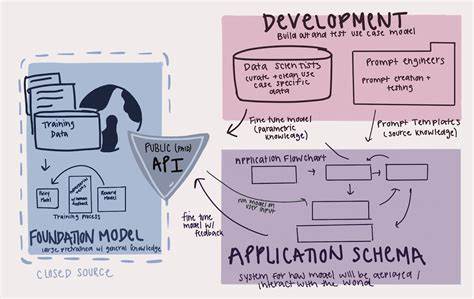 DEVELOPMENT
Build out and test use case model
Data Scientists
curate + clean use
case specific
data
Prompt engineers
Prompt creation +
testing
Training
Data
PUBLIC (paid)
API
Fine tune model
(parametric
knowledge)
Prompt Templates
(source knowledge)
Application Flowchart
Model
w/ human
feedback
Reward
Model
Training process
run model on
user input
Fine tune
model w/
feedback
FOUNDATION MODEL
large pretrained w/ general knowledge
CLOSED SOURCE
APPLICATION SCHEMA
system for how model will be deployed /
interact with the world